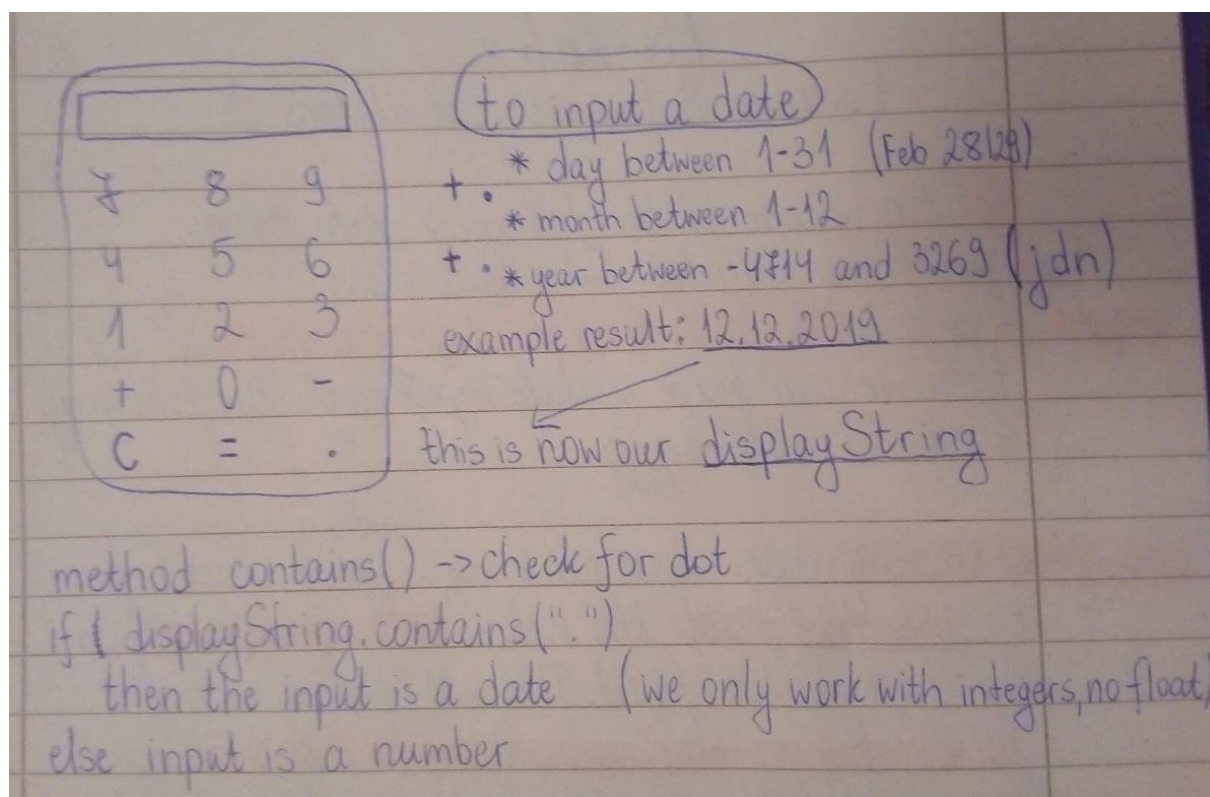 to input a date
7 8 9 + . * day between 1-31 (Feb 28/29)
* month between 1-12
4 5 6 + . * year between -4714 and 3269 (jdn)
1 2 3 example result: 12.12.2019
+ 0 -
C = . this is now our displayString
method contains() -> check for dot
if ( displayString.contains(".")
then the input is a date (we only work with integers, no float)
else input is a number